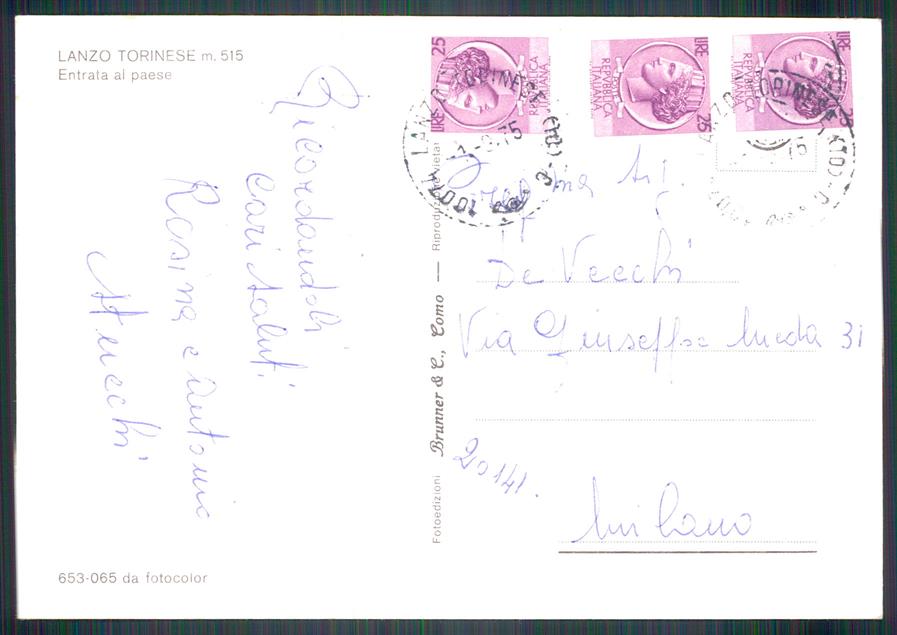 LANZO TORINESE m. 515
Entrata al paese
Ricordandoli
cari saluti
Rosina e Antonio
653-065 da fotocolor
Fotoedizioni Brunner & C., Como — Riproduzione vietata
25 LIRE REPUBBLICA ITALIANA
25 LIRE REPUBBLICA ITALIANA
25 LIRE REPUBBLICA ITALIANA
10074 LANZO TORINESE (TO)
LANZO TORINESE (TO)
De Vecchi
Via Giuseppe Meda 31
20141
Milano